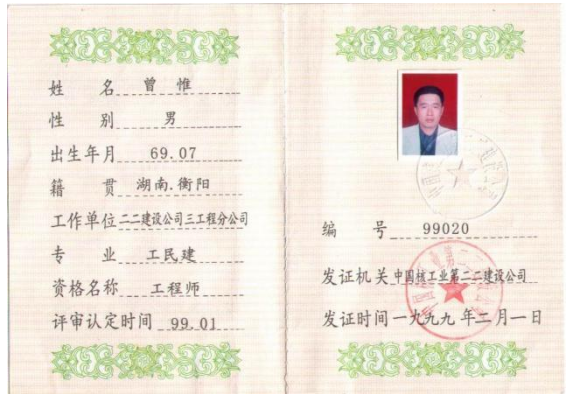 姓 名 曾 惟
性 别 男
出生年月 69.07
籍 贯 湖南.衡阳
工作单位 二二建设公司三工程分公司
专 业 工民建
资格名称 工程师
评审认定时间 99.01
编 号 99020
发证机关 中国核工业第二二建设公司
发证时间 一九九九 年 二 月 一 日